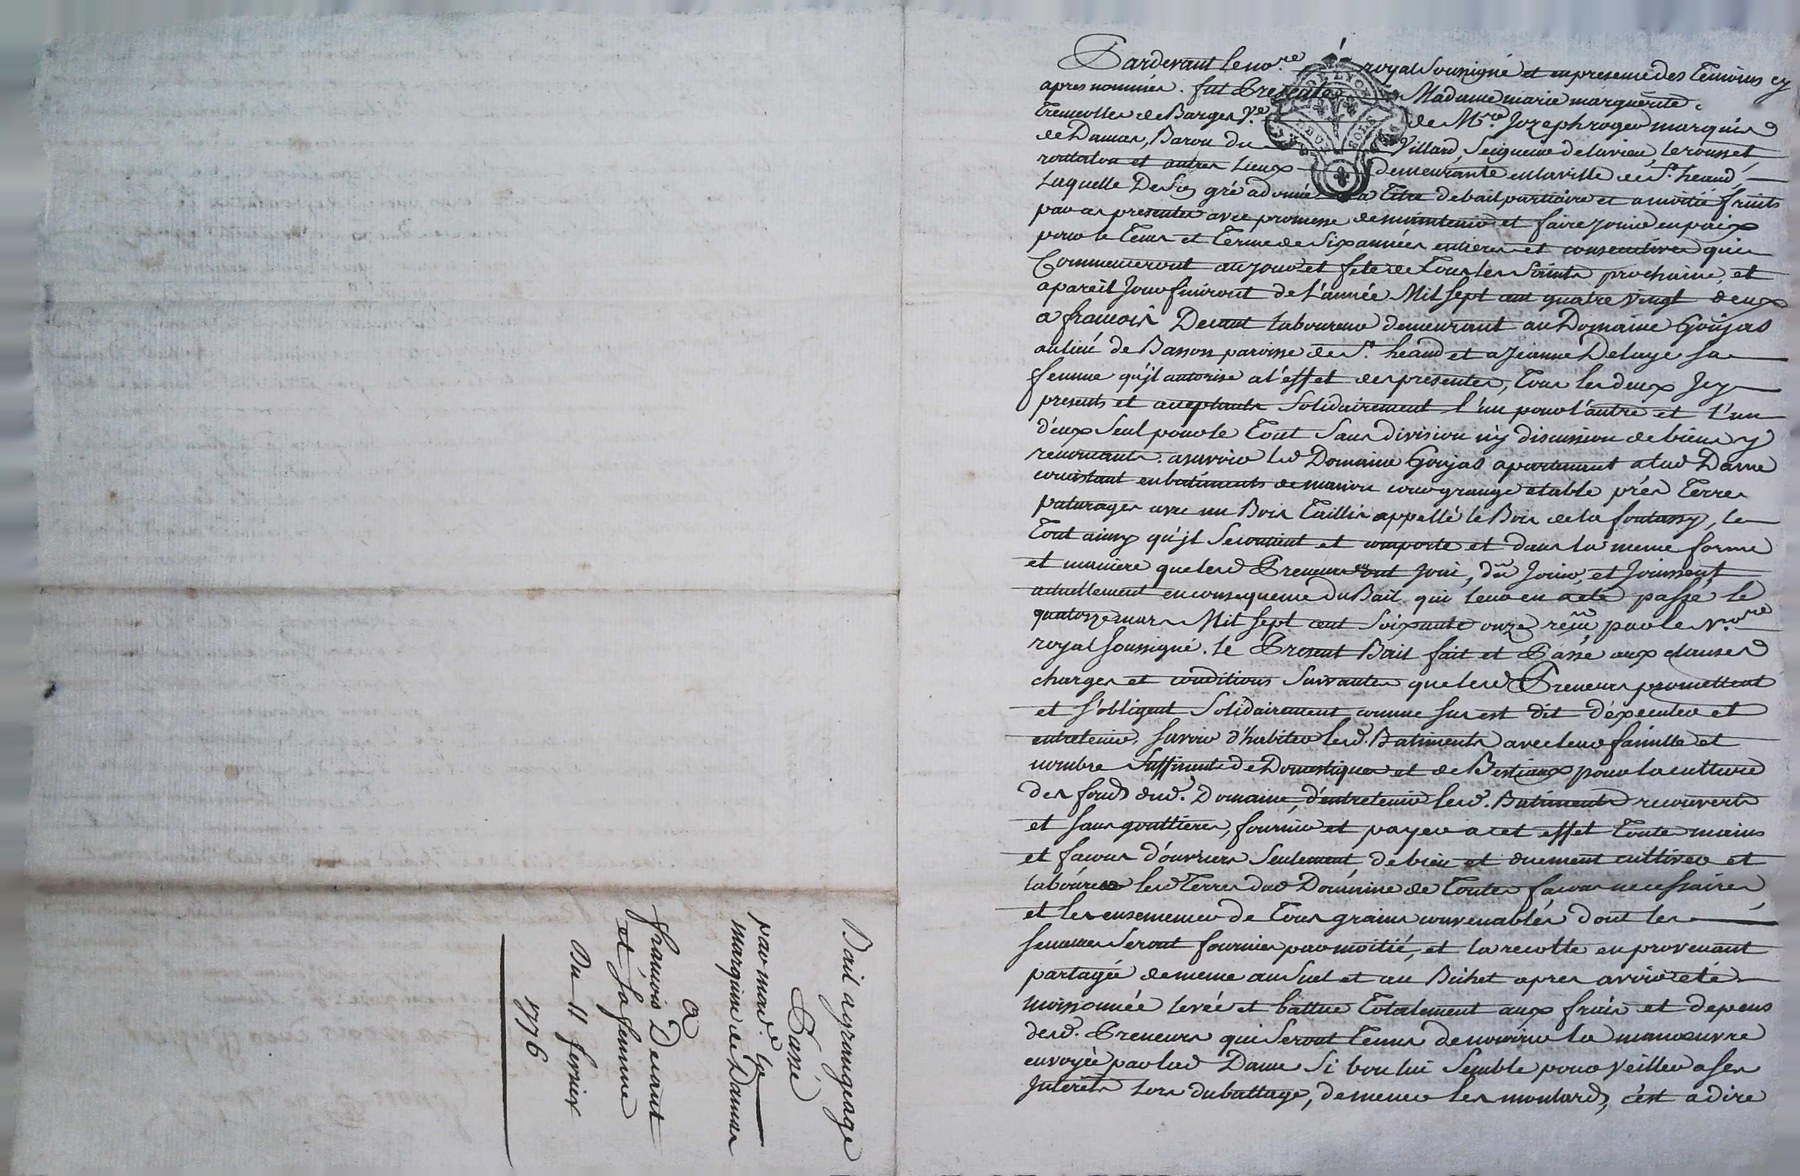 Pardevant le no.re royal soussigné et en presence des temoins cy
apres nommés. fut Presente Madame marie marguerite
de Barges V.e de M.re Jozeph roger marquis
de Damas, Baron du Villard, Seigneur delavieu, lerousset
et autres Lieux demeurante en la ville de S.t heand,
Laquelle De son gré a donné a Titre debail partiaire et a moitié fruits
par ces presentes avec promesse de maintenir et faire jouir en paix
pour le Tems et Terme de Six années entieres et consecutives qui
Commenceront au jour et fete de Tous les Saints prochaine, et
a pareil Jour finiront de l'année Mil Sept cent quatre vingt deux
a francois Decant laboureur demeurant au Domaine Goujas
au lieu de Basson paroisse de S.t heand et a Jeanne Delaye sa
femme qu'il autorise a l'effet des presentes, tous les deux Jcy
presents et acceptants Solidairement l'un pour l'autre et l'un
d'eux Seul pour le Tout Sans division ny discussion de biens y
renoncants. a savoir led Domaine Goujas apartenant a lad Dame
consistant en batiments de maison cour grange etable prés Terres
paturages avec un Bois Taillis appellé le Bois de la fontassy, le
Tout ainsy qu'il Se contient et comporte et dans la meme forme
et maniere que lesd Preneurs en ont Joui, dû Jouir, et Jouissent
actuellement en consequence du Bail qui leur en a eté passé le
quatorze mars Mil Sept cent Soixante onze reçu par le no.re
royal soussigné. le Present Bail fait et Passé aux clauses
charges et conditions Suivantes que lesd Preneurs promettent
et s'obligent Solidairement comme sus est dit d'executer et
entretenir, savoir d'habiter lesd. Batiments avec leur famille et
nombre Suffisant de Domestiques et de Bestiaux pour la culture
des fonds dud. Domaine, d'entretenir lesd. Batiments recouverts
et sans gouttieres, fournir et payer a cet effet Toute mains
et facons d'ouvriers Seulement de bien et duement cultiver et
labourer lesd Terres dud Domaine de Toutes facons necessaires,
et les ensemencer de Tous grains convenables dont les
semences Seront fournies par moitié, et la recolte en provenant
partagée de meme au Suel et au Bichet apres avoir eté
moissonnée levée et battue Totalement aux frais et depens
desd. Preneurs qui Seront Tenus de nourir la manoeuvre
envoyée par lad Dame Si bon lui Semble pour Veiller a ses
Interêts lors du battage, de meme les moulards, c'est a dire
Bail a grangeage
Passé
par mad.e la
marquise de Damas
a
francois Decant
et sa femme
Du 11 fevrier
1776